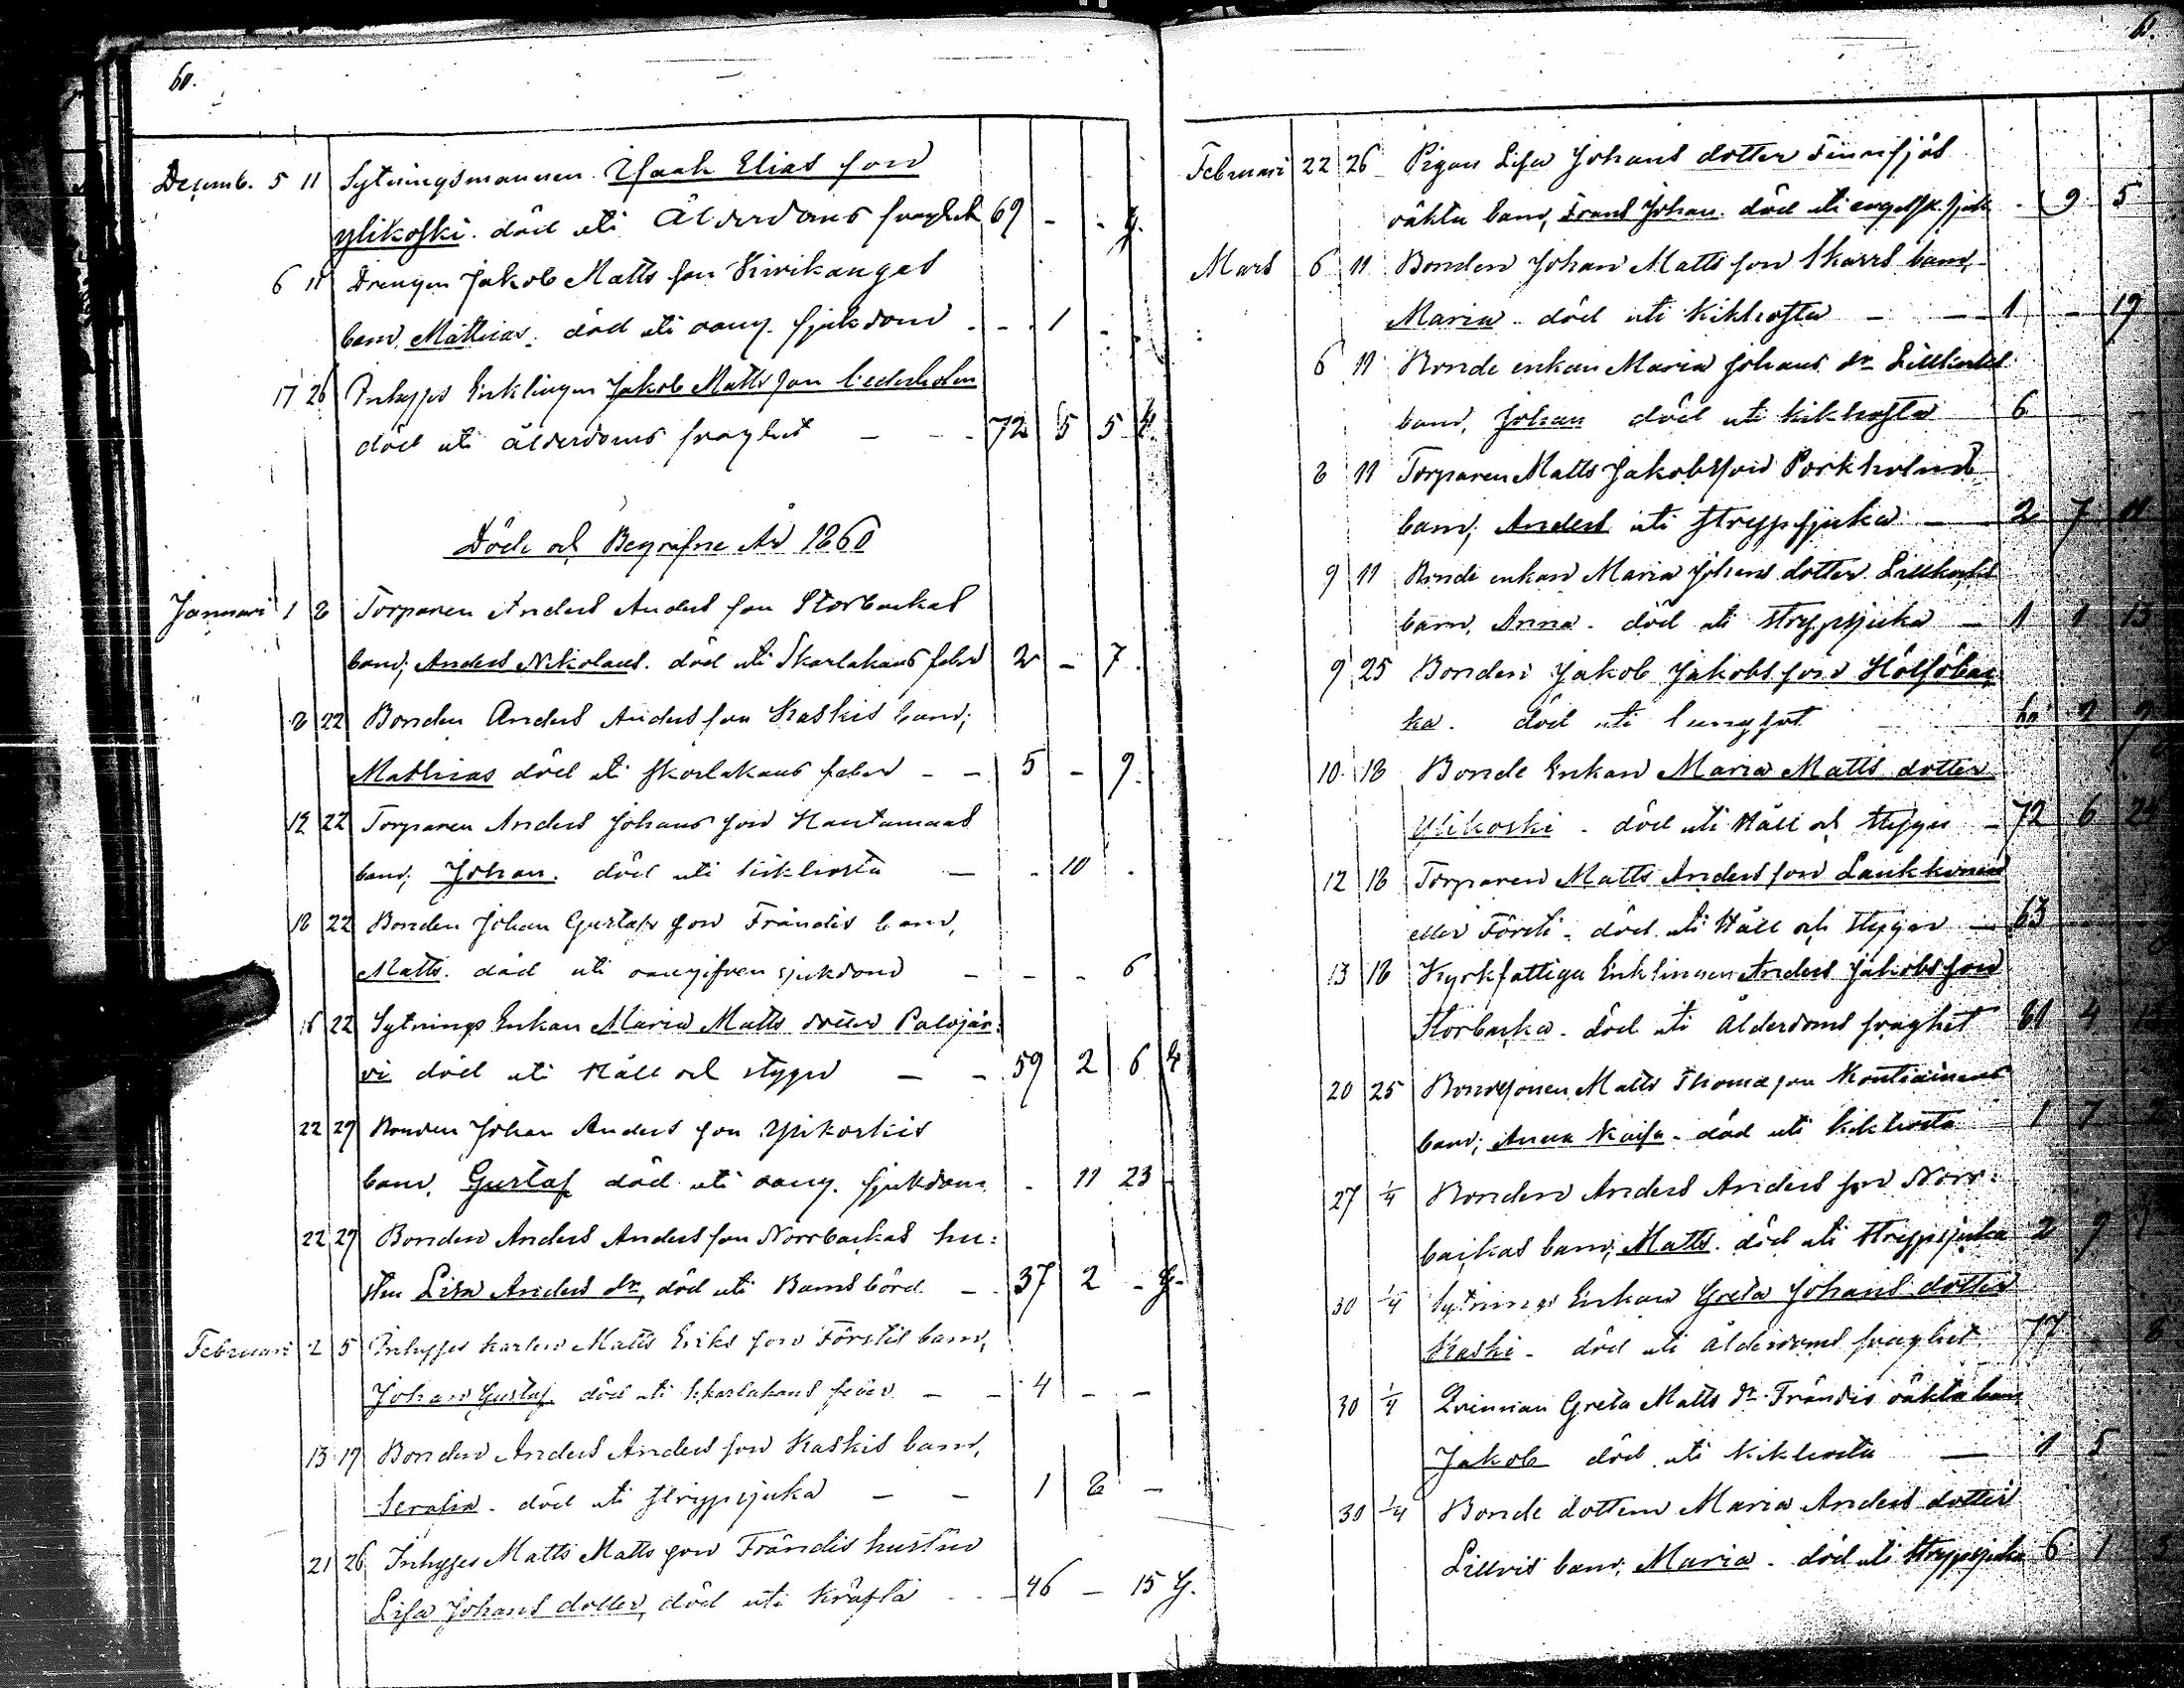 60.
Decemb. 5 11 Sytningsmannen Isaak Elias son
Ylikoski. död uti Ålderdoms svaghet 69 - - g.
6 11 Drengen Jakob Matts son Kivikangas
barn, Mathias. död uti oang. sjukdom - - 1 -
17 26 Inhyses Enklingen Jakob Matts son Cederholm
död uti ålderdoms svaghet - - 72 5 5
Döde och Begrafne År 1860
Januari 1 8 Torparen Anders Anders son Storbackas
barn; Anders Nikolaus. död uti Skarlakans feber 2 - 7.
8 22 Bonden Anders Anders son Kaskis barn;
Mathias död uti skarlakans feber - - 5 - 9.
12 22 Torparen Anders Johans son Hautamaas
barn; Johan. död uti kikhosta - - 10 -
18 22 Bonden Johan Gustafs son Frändis barn,
Matts. död uti oangifven sjukdom - - - 6
16 22 Sytnings Enkan Maria Matts dotter Palojär:
vi död uti Håll och styng - - 59 2 6
22 29 Bonden Johan Anders son Ylikoskis
barn, Gustaf död uti oang. sjukdom - 11 23
22 29 Bonden Anders Anders son Norrbackas hu:
stru Lisa Anders dr, död uti Barnsbörd - 37 2 - g.
Februari 2 5 Inhyses karlen Matts Eriks son Förstis barn,
Johan Gustaf. död uti skarlakans feber - - 4 - -
13 19 Bonden Anders Anders son Kaskis barn,
Serafia. död uti strypsjuka - - 1 8 -
21 26 Inhyses Matts Matts son Frändis hustru
Lisa Johans dotter, död uti kräfta - - 46 - 15 g.
61.
Februari 22 26 Pigan Lisa Johans dotter Finnsjös
oäkta barn, Frans Johan. död uti engelsk. sjuk - 9 5
Mars 6 11 Bonden Johan Matts son Skarrs barn,
Maria. död uti Kikhosta - - 1 - 19
6 11 Bonde enkan Maria Johans dr
barn, Johan död uti kikhosta 6 - -
8 11 Torparen Matts Jakobsson Porkholms
barn; Anders uti strypsjuka - 2 7 11
9 11 Bonde enkan Maria Johans dotter
barn, Anna. död uti strypsjuka - 1 1 13
9 25 Bonden Jakob Jakobs son Hölsöbac
ka. död uti lungsot 60 2
10 18 Bonde Enkan Maria Matts dotter
Ylikoski. död uti Håll och styng - 72 6 24
12 18 Torparen Matts Anders son Laukkonen
eller Försti. död uti Håll och styng - 63
13 18 Kyrkfattiga Enklingen Anders Jakobs son
Storbacka. död uti ålderdoms svaghet 81 4
20 25 Bondesonen Matts Thomas son Kontiainens
barn; Anna Kaisa. död uti kikhosta 1 7 2
27 1/4 Bonden Anders Anders son Norr:
backas barn; Matts. död uti strypsjuka 2 9
30 1/4 Sytnings Enkan Greta Johans dotter
Kaski. död uti ålderdoms svaghet 77 8
30 1/4 Qvinnan Greta Matts dr Frändis oäkta barn
Jakob död uti kikhosta - 1 5
30 1/4 Bonde dottern Maria Anders dotter
Lillvis barn, Maria. död uti strypsjuka 6 1 3